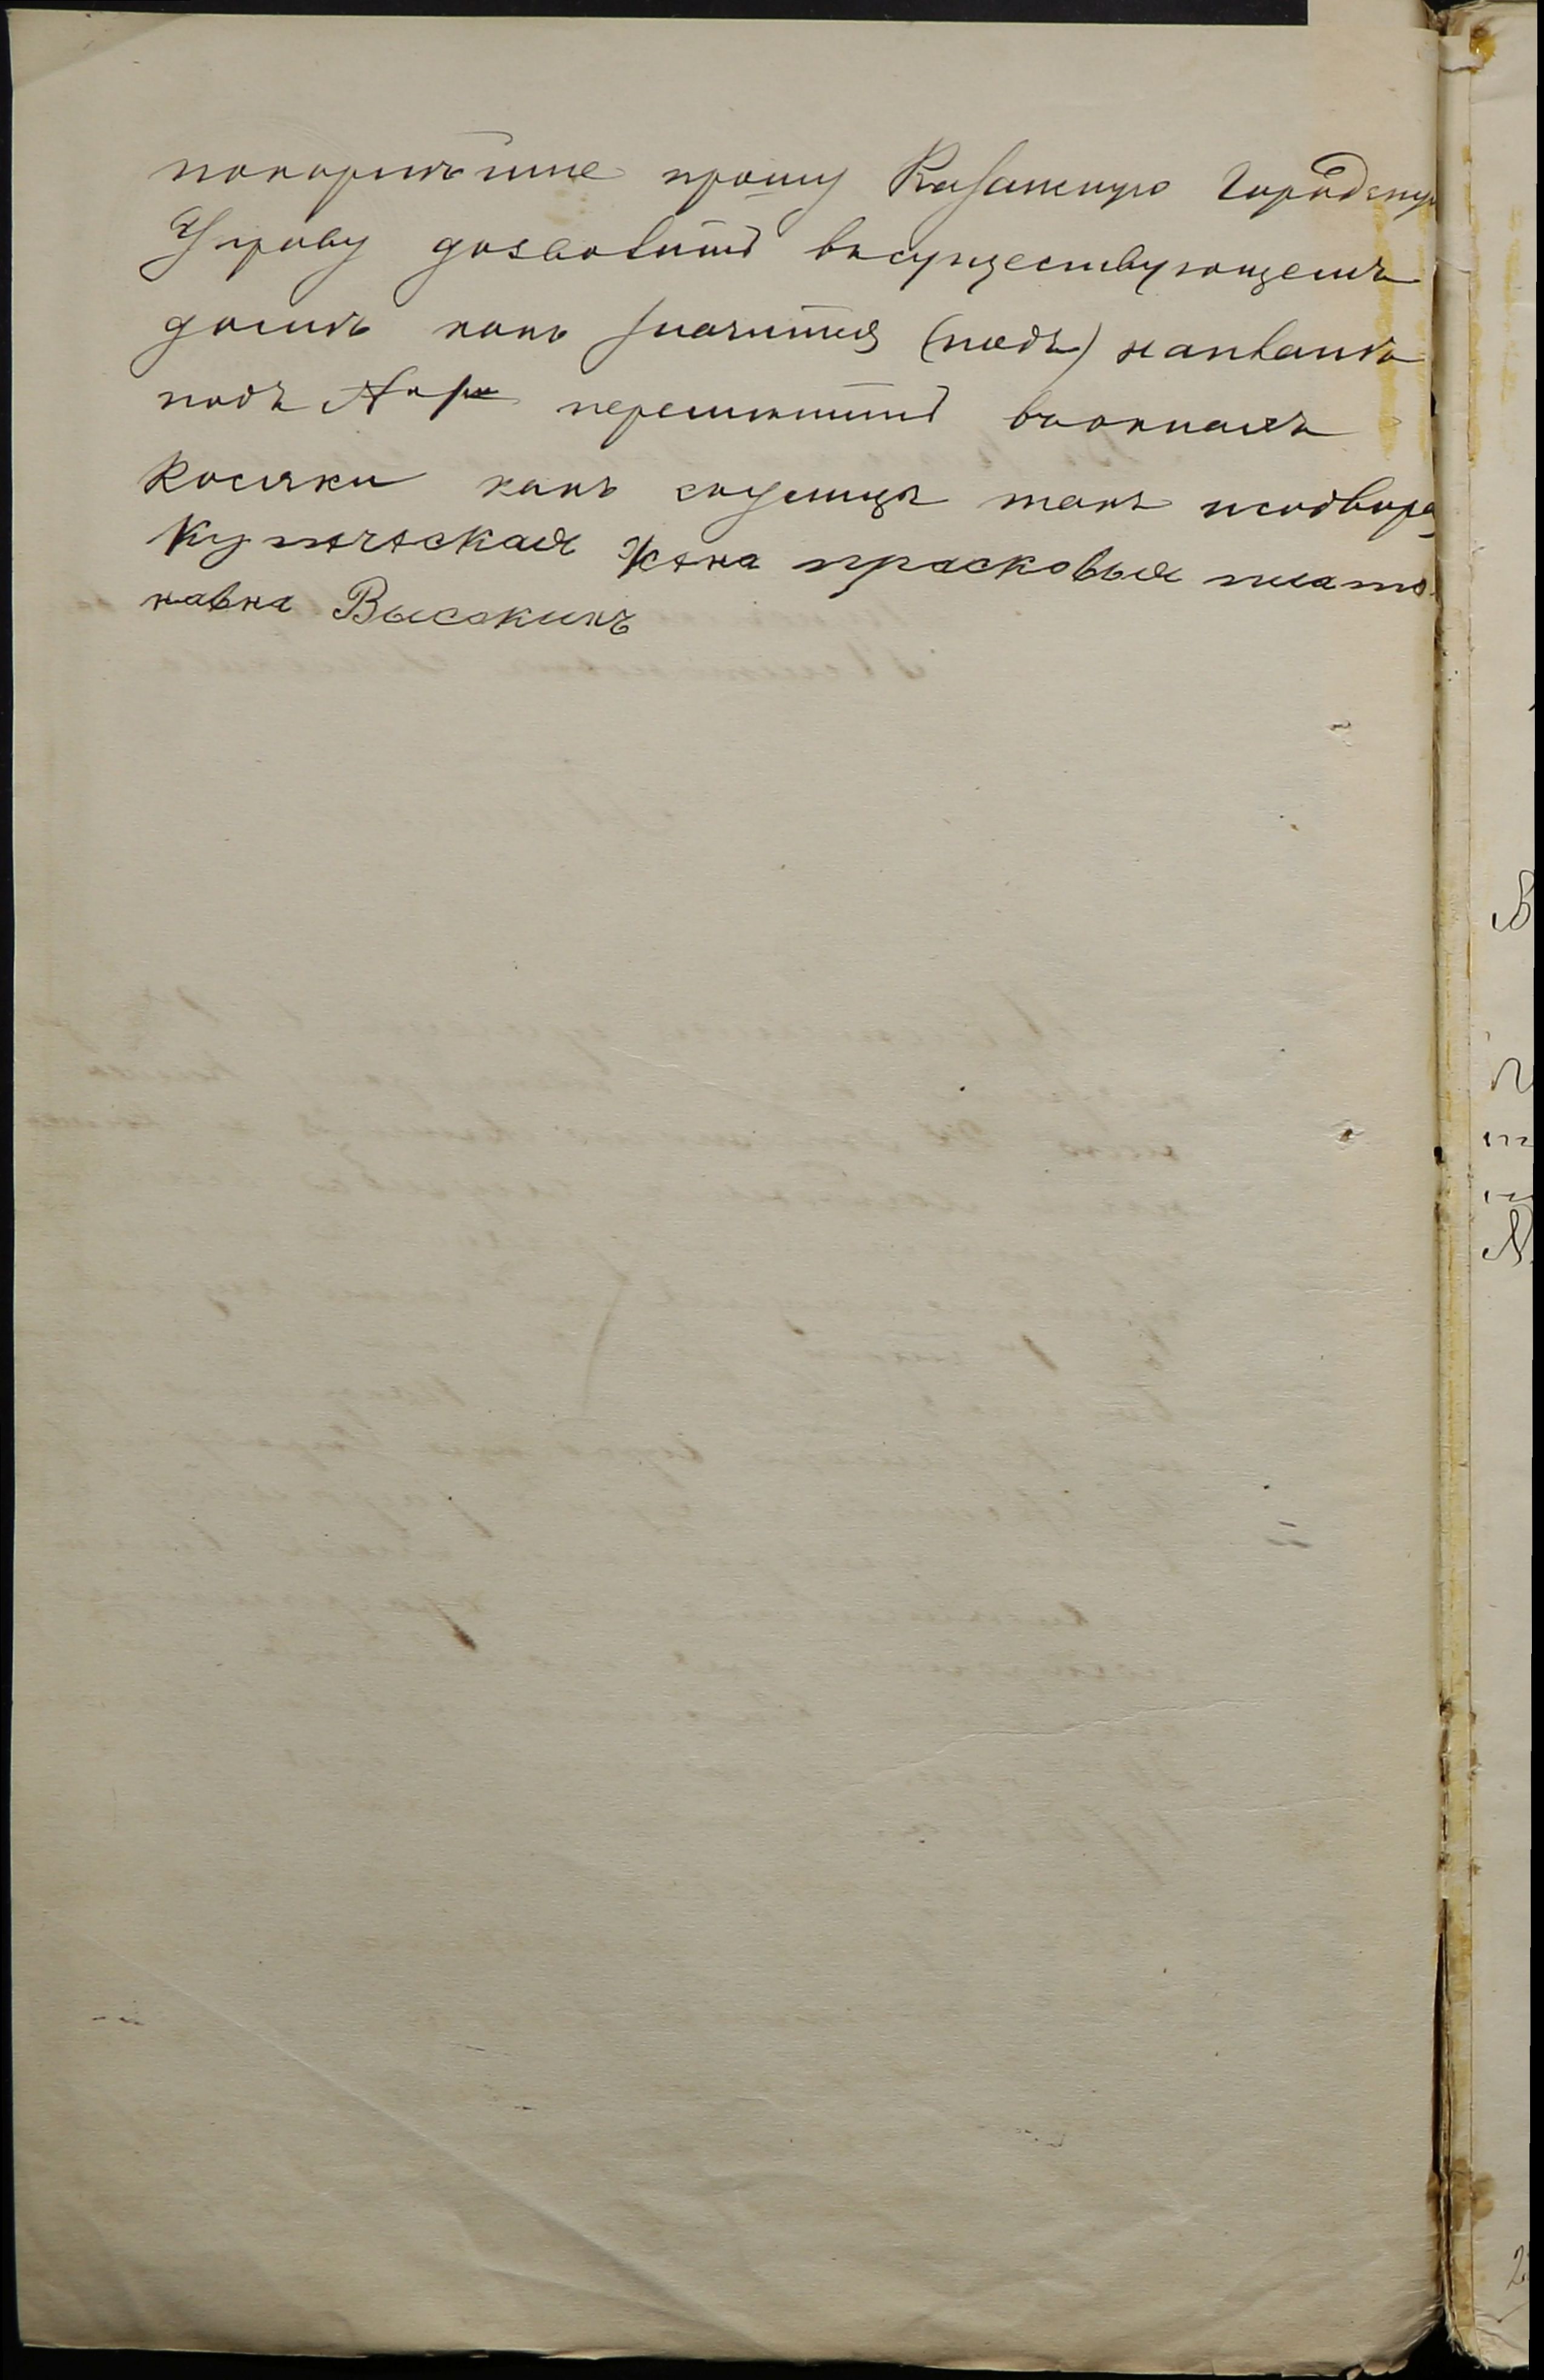 покорнѣйше прошу Казанскую Городскую
Управу дозволить въсуществующемъ
домѣ какъ значится (подъ) напланѣ
подъ перемѣнить вокнахъ
косяки какъ сулицы такъ исодвора
Купечаская жена прасковья плато
навна Высокихъ